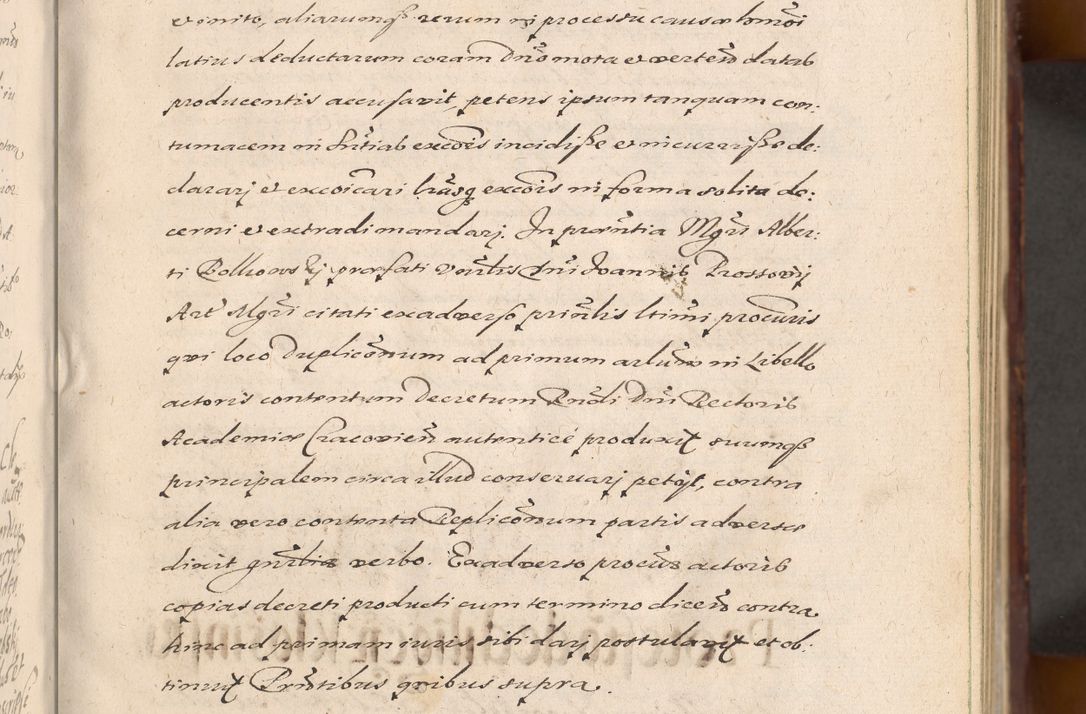 et inito, aliarumqß rerum in processu causæ hmōi
latius deductarum coram Dnō mota et verteñ datab
producentis accusavit, petens ipsum tanquam con:
tumacem in sñtiab excōis incidisse et incurrisse de:
clararj et excōicari lrasq excōis in forma solita de:
cerni et extradi mandarj. In prœntia Mgrī Alber:
ti Bolhowskj præfati vñrlis Dnī Joannis Prossovij
Art Mgrī citati exadverso prinlis ltimi procuris
qvi loco Duplicōnum ad primum arlum in Libello
actoris contentum Decretum Rndi Dnī Rectoris
Academiæ Cracovieñ autenticé produxit suumqß
principalem circa illud conservarj petijt, contra
alia vero contenta Replicōnum partis adversæ
dixit gnrlia verbo. Exadverso procur actoris
copias decreti producti cum termino diceñ contra
hinc ad primam iuris sibi darj postulavit et ob:
tinuit Prntibus qvibus supra.